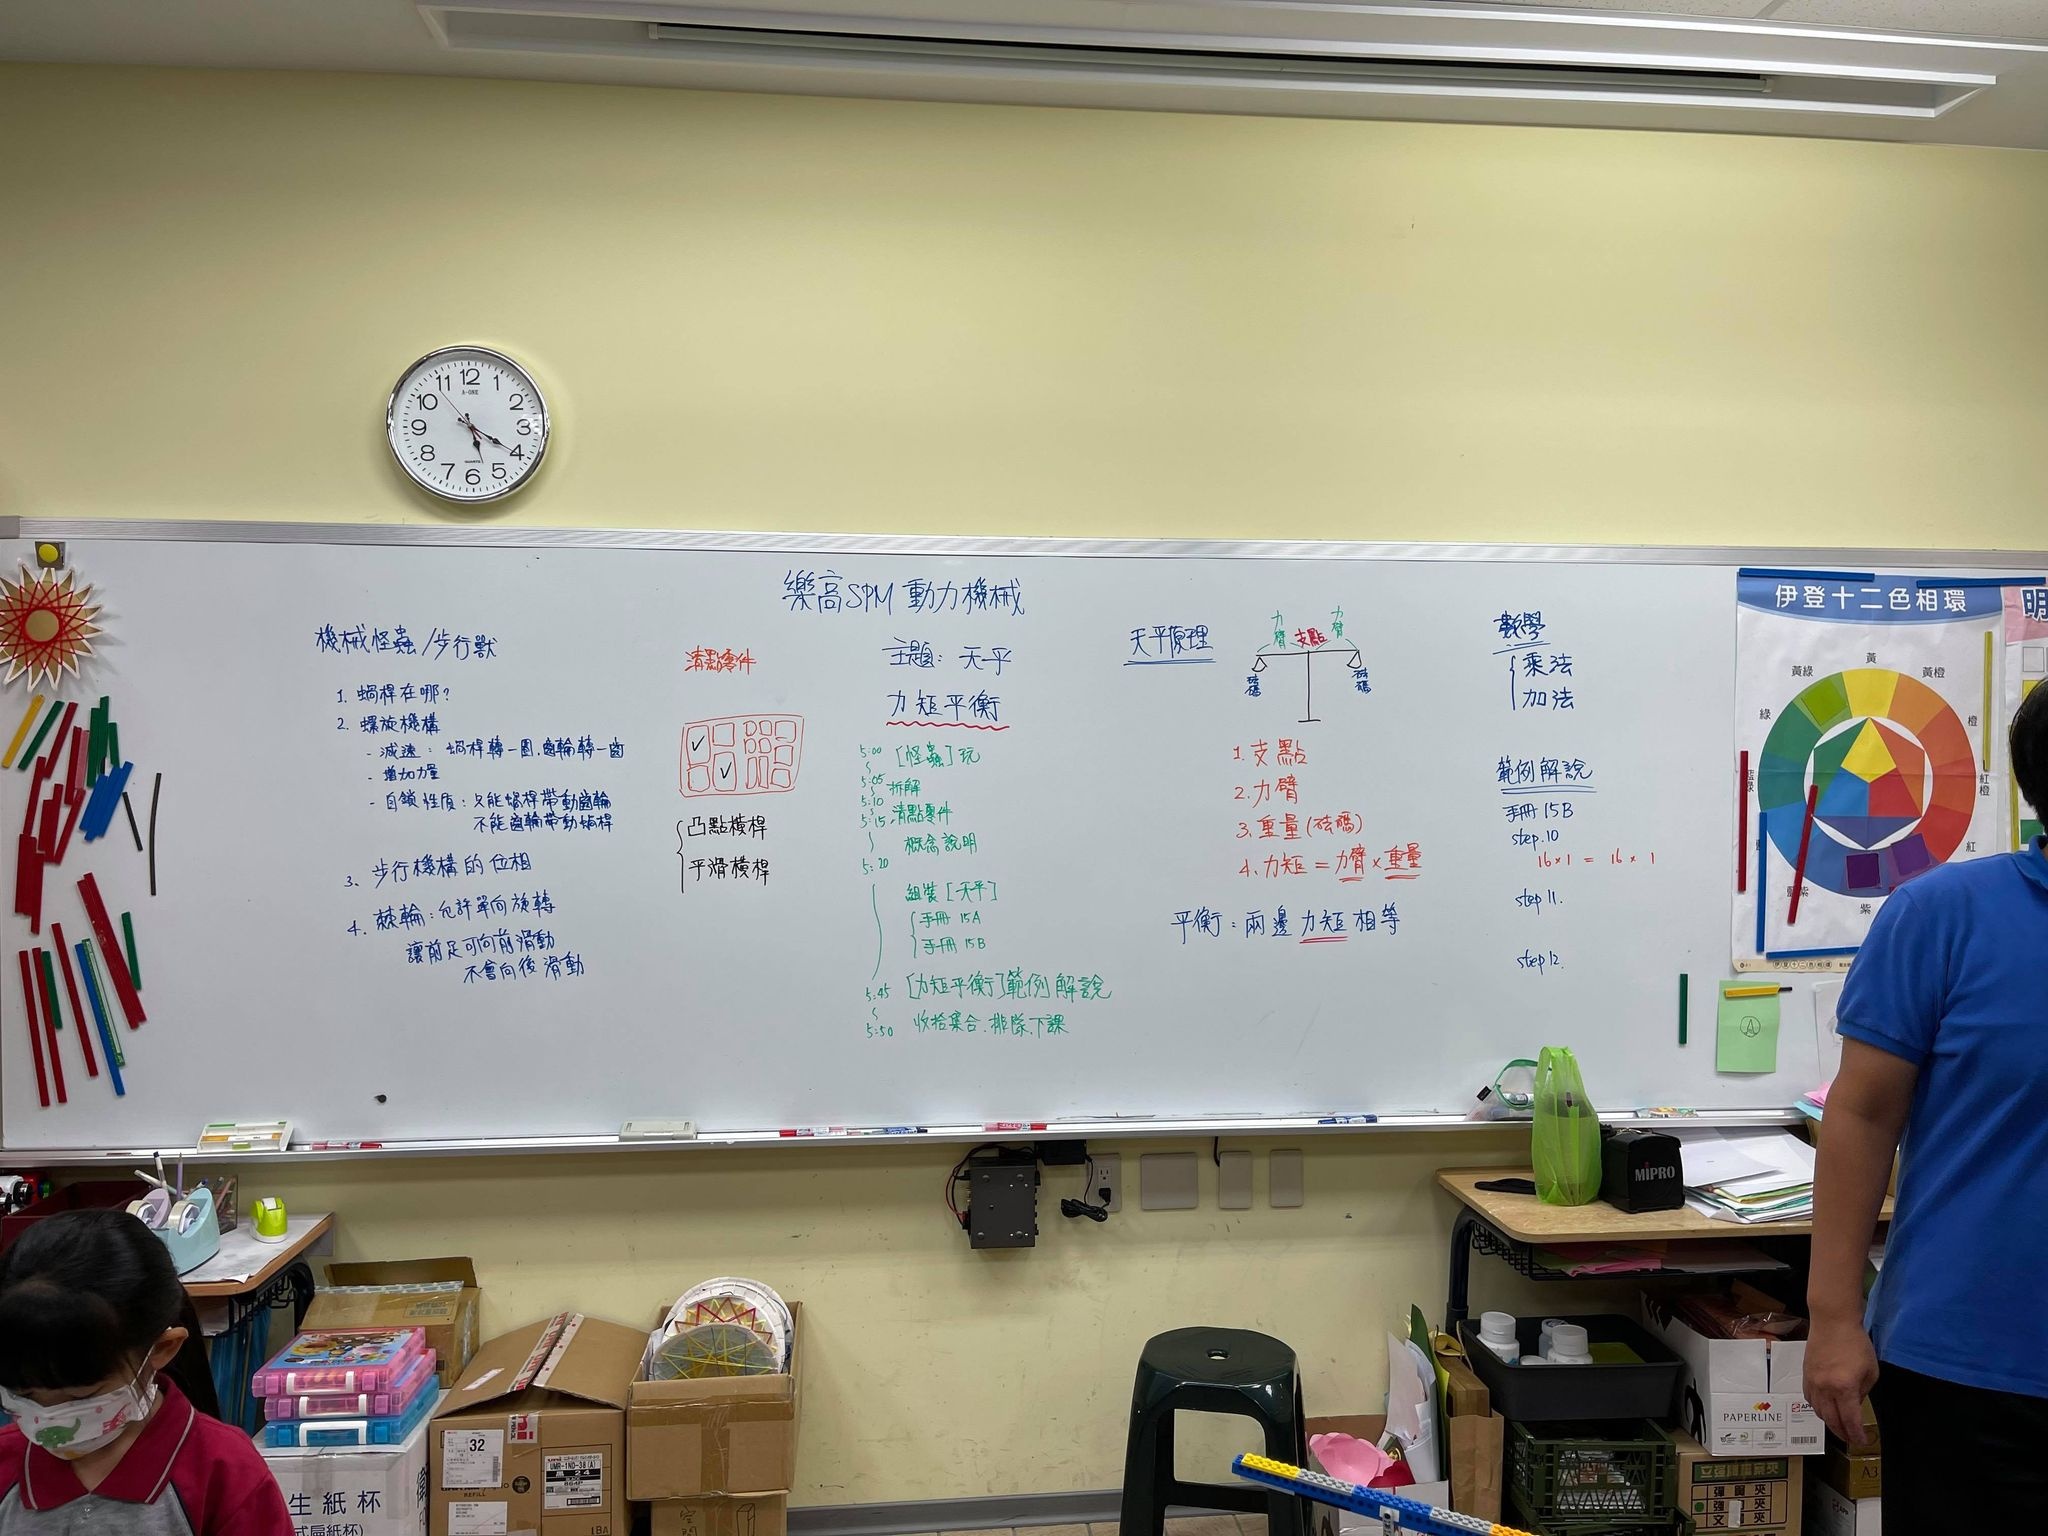 12
1
2
3
4
5
6
7
8
9
10
11
A-ONE
QUARTZ
樂高SPM 動力機械
機械怪蟲/步行獸
1. 蝸桿在哪?
2. 螺旋機構
- 減速: 蝸桿轉一圈.齒輪轉一齒
- 增加力量
- 自鎖性質: 只能蝸桿帶動齒輪
不能齒輪帶動蝸桿
3. 步行機構的位相
4. 棘輪: 允許單向旋轉
讓前足可向前滑動
不會向後滑動
清點零件
凸點橫桿
平滑橫桿
主題: 天平
力矩平衡
5:00 [怪蟲]玩
5:05 拆解
5:10 清點零件
5:15
概念說明
5:20
組裝[天平]
手冊 15A
手冊 15B
5:45 [力矩平衡]範例解說
5:50 收拾集合.排隊.下課
天平原理
力臂 支點 力臂
砝碼 砝碼
1. 支點
2. 力臂
3. 重量(砝碼)
4. 力矩 = 力臂 × 重量
平衡: 兩邊力矩相等
數學
乘法
加法
範例解說
手冊 15B
step.10
16×1 = 16×1
step 11.
step 12.
伊登十二色相環
黃
黃綠
黃橙
綠
橙
藍綠
紅橙
紅
藍紫
紫
明
A
MIPRO
32
UMR-1ND-38(A)
黒 24
REFILL
1BA
生紙杯
PAPERLINE
立強檔案夾
彈簧夾
強力夾
文件夾
A3